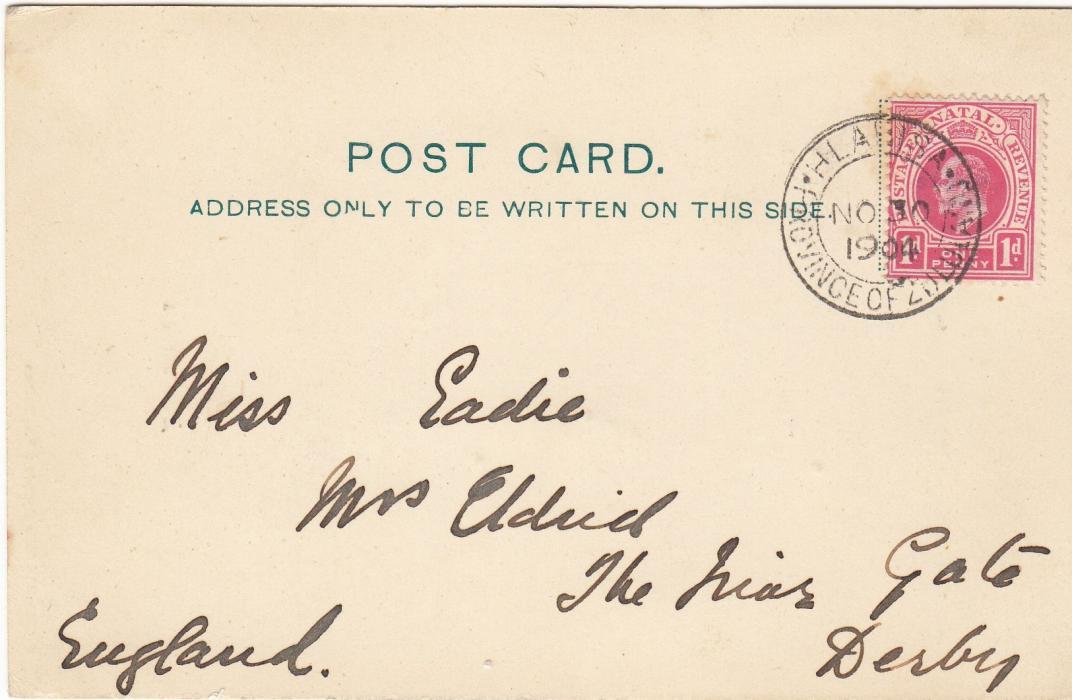 POST CARD.
ADDRESS ONLY TO BE WRITTEN ON THIS SIDE.
NATAL.
POSTAGE REVENUE
1d ONE PENNY 1d
HLABISA
NO 30
1904
PROVINCE OF ZULULAND
Miss Eadie
Mrs Eldrid
The Friar Gate
Derby
England.